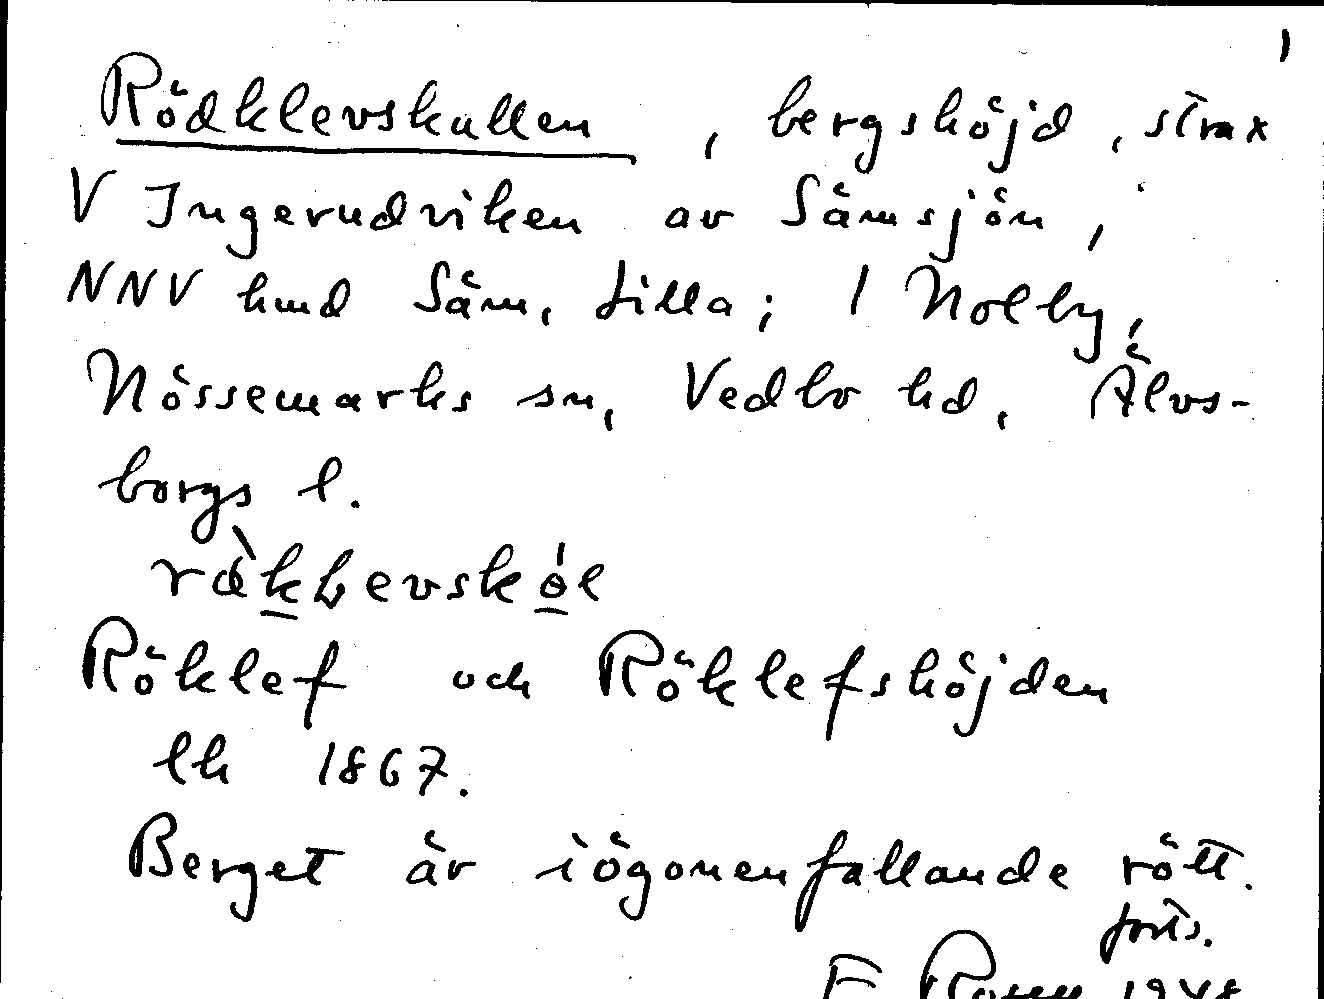 1
Rödklevskullen, bergshöjd, strax
V Ingerudviken av Sämsjön,
NNV hmd Säm, Lilla; / Nolby,
Nössemarks sn, Vedbo hd, Älvs-
borgs l.
Röklef och Röklefshöjden
lh 1867.
Berget är iögonenfallande rött.
forts.